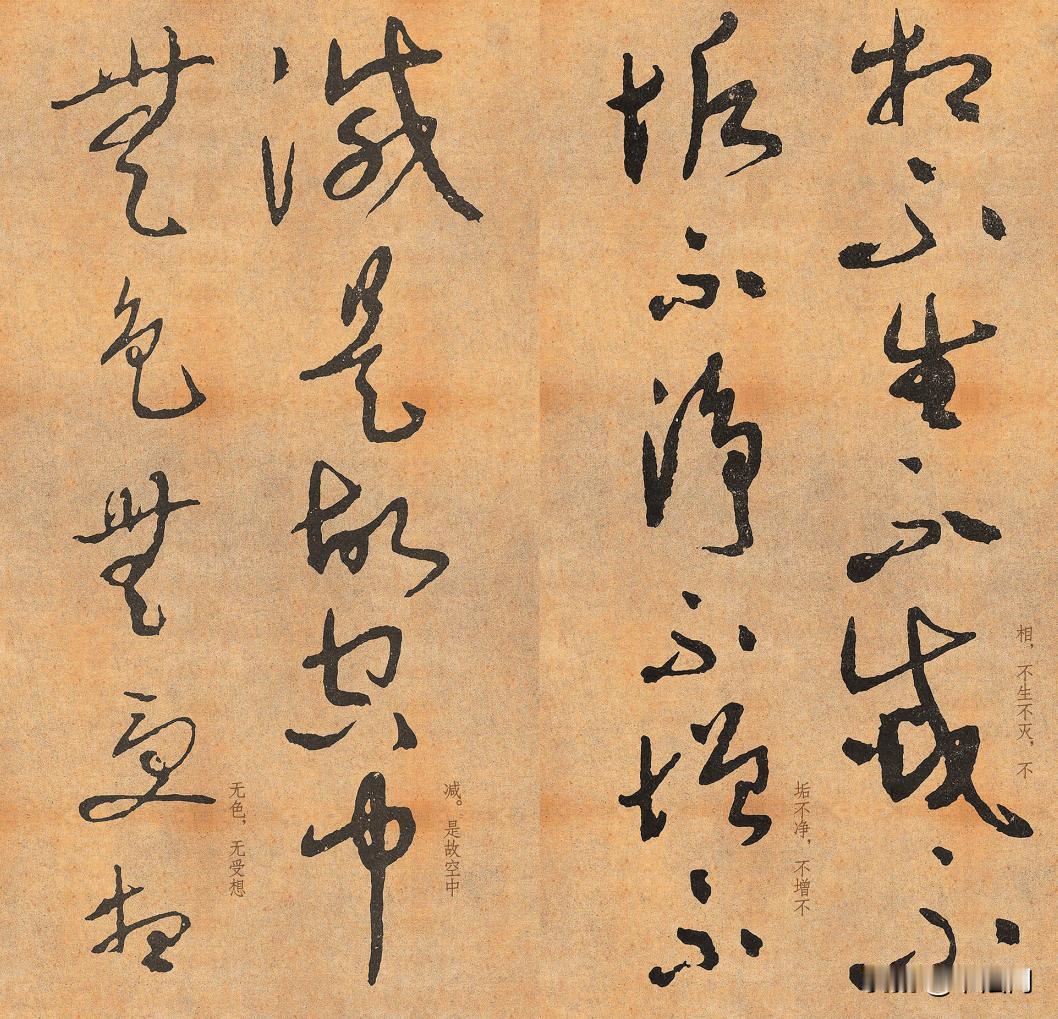 相不生不滅不
垢不净不增不
減是故空中
無色無受想
相，不生不灭，不
垢不净，不增不
减。是故空中
无色，无受想